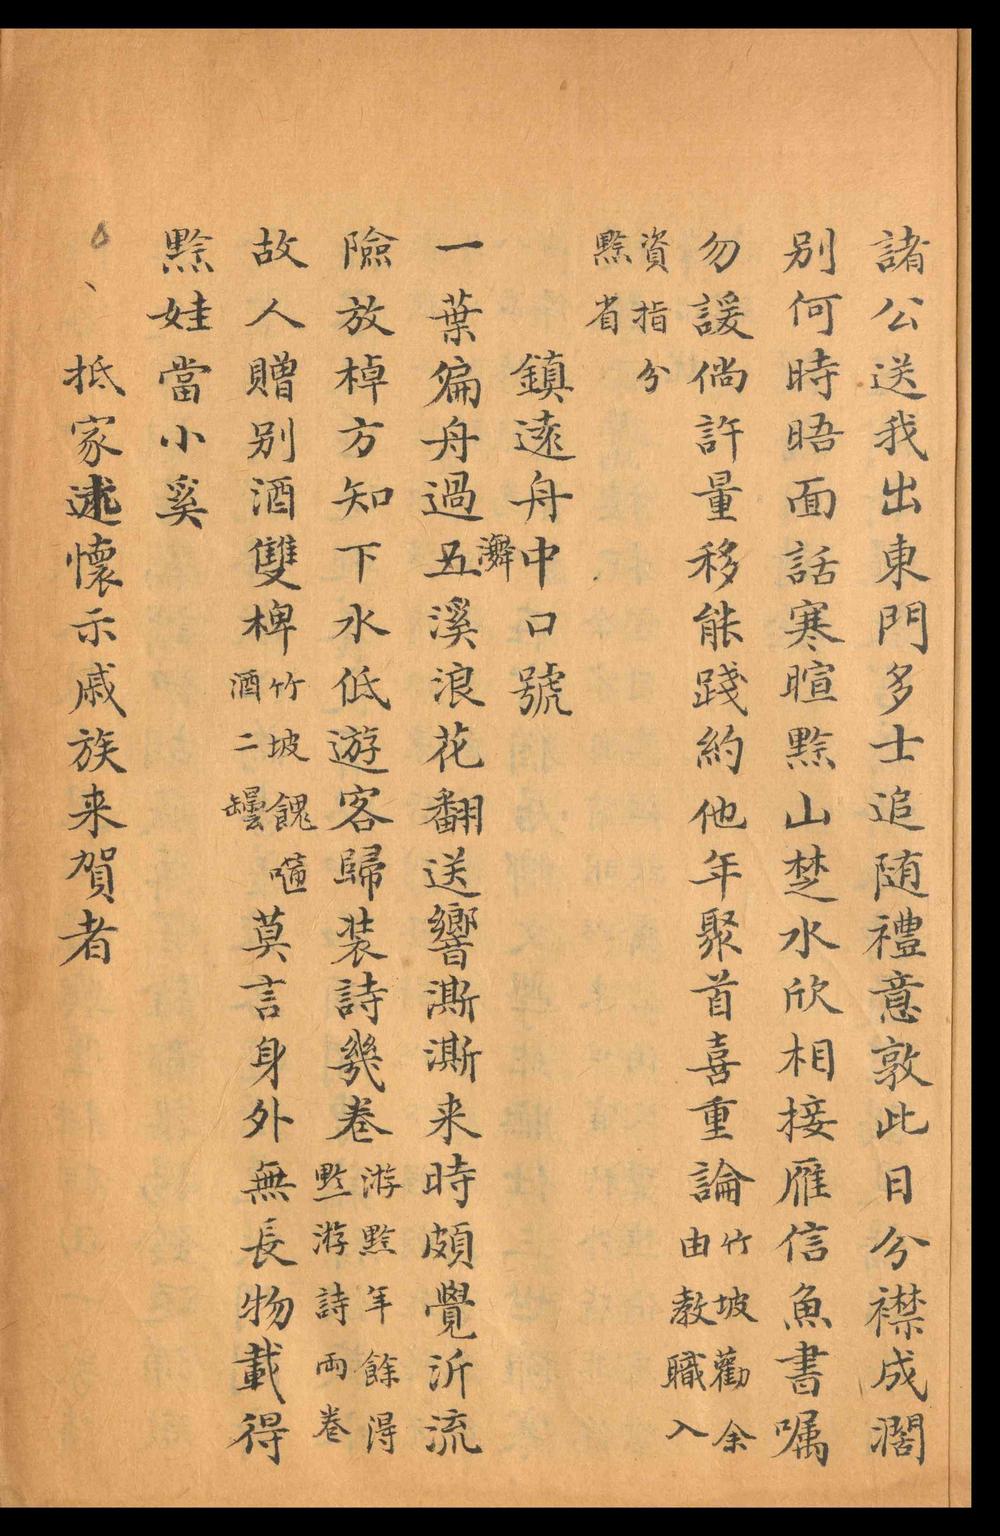 諸公送我出東門多士追随禮意敦此日分襟成濶
别何時晤面話寒暄黔山楚水欣相接雁信魚書嘱
勿諼倘許量移能踐約他年聚首喜重論竹坡勸余
由教職入
資指分
黔省
鎮遠舟中口號
一葉㼐舟過五溪浪花翻送響澌澌来時頗覺泝流
灘
險放棹方知下水低遊客歸装詩幾卷游黔年餘淂
黔游詩兩卷
故人贈别酒雙椑竹坡餽䢔
酒二罎
莫言身外無長物載得
黔娃當小奚
抵家述懷示戚族来賀者